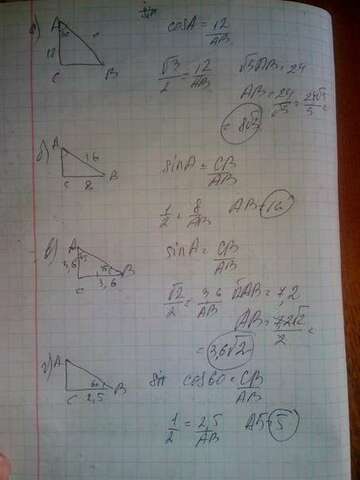 sin
а)
A
C
B
cosA = 12/AB
√3/2 = 12/AB
√3AB = 24
AB = 24/√3 = 24√3/3 =
= 8√3
б)
A
16
C
8
B
sinA = CB/AB
1/2 = 8/AB
AB = 16
в)
A
3,6
C
3,6
B
sinA = CB/AB
√2/2 = 3,6/AB
√2AB = 7,2
AB = 7,2√2/2 =
= 3,6√2
г)
A
60
C
2,5
B
sin
cos60 = CB/AB
1/2 = 2,5/AB
AB = 5